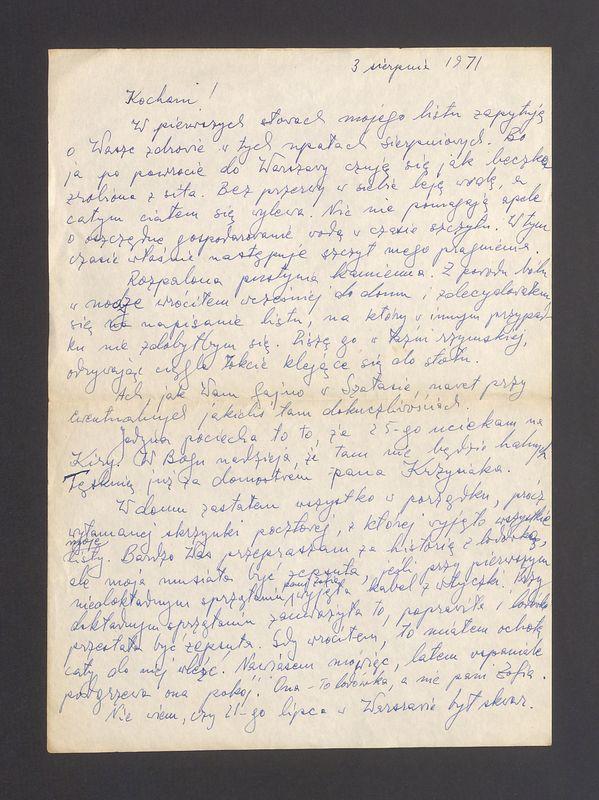 3 sierpnia 1971
Kochani!
W pierwszych słowach mojego listu zapytuję
o Wasze zdrowie w tych upałach sierpniowych. Bo
ja po powrocie do Warszawy czuję się jak beczka
zrobiona z sita. Bez przerwy w siebie leję wodę, a
całym ciałem się wylewa. Nic nie pomagają apele
o oszczędne gospodarowanie wodą w czasie szczytu. W tym
czasie właśnie następuje szczyt mego pragnienia.
Rozpalona pustynia kamienna. Z powodu bólu
w nodze wróciłem wcześniej do domu i zdecydowałem
się na napisanie listu, na który w innym przypad-
ku nie zdobyłbym się. Piszę go w łaźni rzymskiej,
odrywając ciągle łokcie klejące się do stołu.
Ach, jak Wam fajno w Szałasie, nawet przy
ewentualnych jakichś tam dokuczliwościach.
Jedyna pociecha to to, że 25-go uciekam na
Kiry. W Bogu nadzieja, że tam nie będzie halnych
Tęsknię już za domostwem pana Krzysiaka.
W domu zastałem wszystko w porządku, prócz
wyłamanej skrzynki pocztowej, z której wyjęto wszystkie
moje
listy. Bardzo Was przepraszam za historię z lodówką,
ale moja musiała być zepsuta, jeśli przy pierwszym
pani Zofia
niedokładnym sprzątaniu wyjęła kabel z wtyczki. Przy
dokładnym sprzątaniu zauważyła to, poprawiła i lodówka
przestała być zepsuta. Gdy wróciłem, to miałem ochotę
cały do niej wleźć. Nawiasem mówiąc, latem wspaniale
podgrzewa ona pokój. Ona - to lodówka, a nie pani Zofia.
Nie wiem, czy 21-go lipca w Warszawie był skwar.